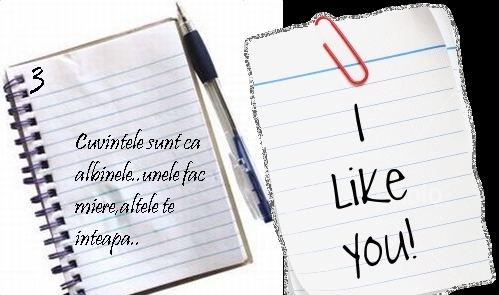 3
Cuvintele sunt ca
albinele..unele fac
miere,altele te
inteapa..
I
Like
you!